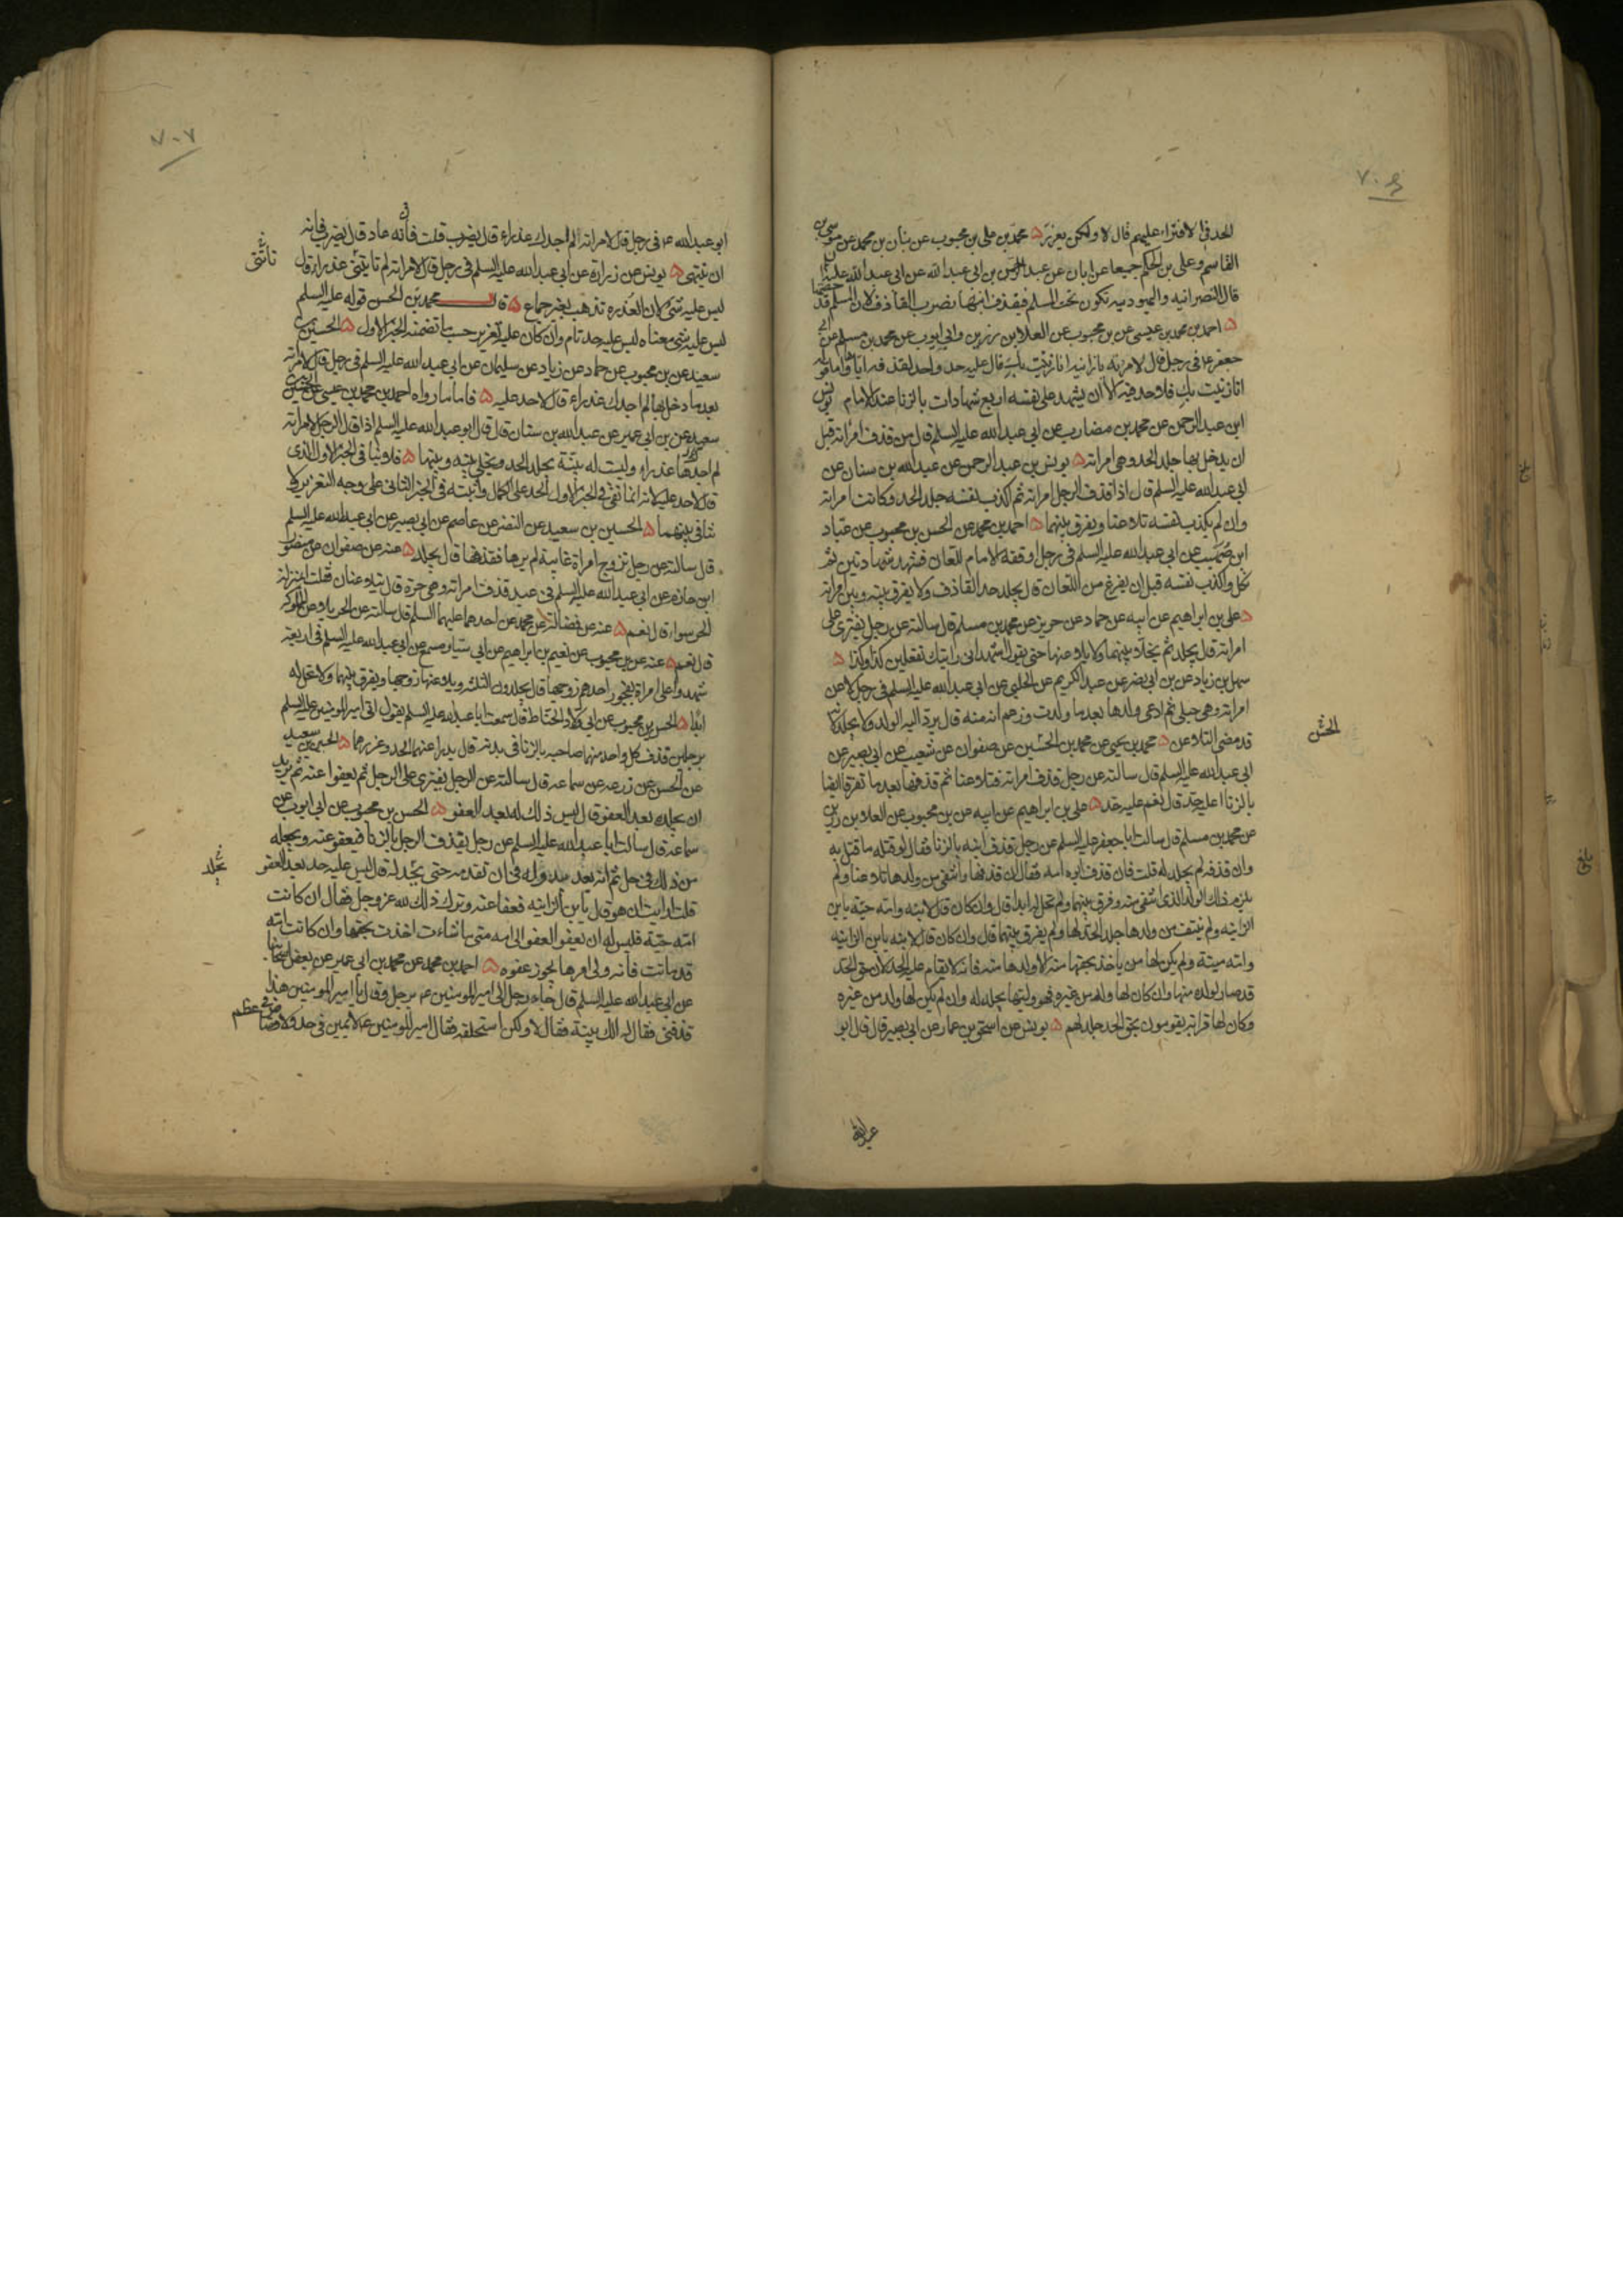 ٧٠٦
الحد في الافتراء عليهم قال لا ولكن يعزر ۵ محمد بن علي بن محبوب عن بنان بن محمد عن موسى بن
القاسم وعلى بن الحكم جميعا عن ابان عن عبد الرحمن بن ابى عبد الله عن ابى عبد الله عليه السلم
قال النصرانيه واليهوديه تكون تحت المسلم فيقذف ابنها يضرب القاذف لان المسلم قد حصنها
۵ احمد بن محمد بن عيسى عن بن محبوب عن العلا بن رزين وابي ايوب عن محمد بن مسلم عن ابي
جعفر ع في رجل قال لامرته يا زانيه انا زنيت بك قال عليه حد واحد لقذفه اياها واما قوله
انا زنيت بك فلا حد فيه الا ان يشهد على نفسه اربع شهادات بالزنا عند الامام يونس
ابن عبد الرحمن عن محمد بن مضارب عن ابي عبد الله عليه السلم قال من قذف امراته قبل
ان يدخل بها جلد الحد وهي امراته ۵ يونس بن عبد الرحمن عن عبد الله بن سنان عن
ابي عبد الله عليه السلم قال اذا قذف الرجل امراته ثم اكذب نفسه جلد الحد وكانت امراته
وان لم يكذب نفسه تلاعنا ويفرق بينهما ۵ احمد بن محمد عن الحسن بن محبوب عن عباد
ابن صهيب عن ابي عبد الله عليه السلم في رجل اوقفه الامام للعان فشهد شهادتين ثم
نكل واكذب نفسه قبل ان يفرغ من اللعان قال يجلد حد القاذف ولا يفرق بينه وبين امراته
۵ على بن ابراهيم عن ابيه عن حماد عن حريز عن محمد بن مسلم قال سالته عن رجل يفترى على
امراته قال يجلد ثم يخلى بينهما ولا يلاعنها حتى يقول اشهد انى رايتك تفعلين كذا وكذا ۵
سهل بن زياد عن بن ابي نصر عن عبد الكريم عن الحلبي عن ابي عبد الله عليه السلم في رجل لاعن
امراته وهي حبلى ثم ادعى ولدها بعد ما ولدت وزعم انه منه قال يرد اليه الولد ولا يجلد لانه
قد مضى التلاعن ۵ محمد بن يحيى عن محمد بن الحسين عن صفوان عن شعيب عن ابي بصير عن
ابي عبد الله عليه السلم قال سالته عن رجل قذف امراته فتلاعنا ثم قذفها بعد ما تفرقا ايضا
بالزنا اعليه حد قال نعم عليه حد ۵ على بن ابراهيم عن ابيه عن بن محبوب عن العلا بن رزين
عن محمد بن مسلم قال سالت ابا جعفر عليه السلم عن رجل قذف ابنه بالزنا فقال لو قتله ما قتل به
وان قذفه لم يجلد له قلت فان قذف ابوه امه فقال ان قذفها وانتفى من ولدها تلاعنا ولم
يلزم ذلك الولد الذي انتفى منه وفرق بينهما ولم تحل له ابدا قال وان كان قال لابنه وامه حية يا بن
الزانيه ولم ينتف من ولدها جلد الحد لها ولم يفرق بينهما قال وان كان قال لابنه يا بن الزانيه
وامه ميتة ولم يكن لها من ياخذ بحقها منه الا ولدها منه فانه لا يقام عليه الحد لان حق الحد
قد صار لولده منها وان كان لها ولد من غيره فهو وليها يجلد له وان لم يكن لها ولد من غيره
وكان لها قرابة يقومون بحق الحد جلد لهم ۵ يونس عن اسحق بن عمار عن ابي بصير قال قال ابو
الحسن
عبد الله
٧٠٧
ابو عبد الله ع في رجل قال لامراته لم اجدك عذراء قال يضرب قلت فانه عاد قال يضرب فانه
ان ينتهى ۵ يونس عن زرارة عن ابي عبد الله عليه السلم في رجل قال لامراته لم تاتيني عذراء قال
تاتنى
ليس عليه شئ لان العذره تذهب بغير جماع ۵ قال محمد بن الحسن قوله عليه السلم
ليس عليه شئ معناه ليس عليه حد تام وان كان عليه تعزير حسب ما تضمنه الخبر الاول ۵ الحسين بن
سعيد عن بن محبوب عن حماد عن زياد عن سليمان عن ابي عبد الله عليه السلم في رجل قال لامراته
بعد ما دخل بها لم اجدك عذراء قال لا حد عليه ۵ فاما ما رواه احمد بن محمد بن عيسى عن الحسين بن
سعيد عن بن ابي عمير عن عبد الله بن سنان قال قال ابو عبد الله عليه السلم اذا قال الرجل لامراته
لم اجدك عذراء وليست له بينة يجلد الحد ويخلى بينه وبينها ۵ فلا ينافي الخبر الاول الذي
قال لا حد عليه لانه انما نفى في الخبر الاول الحد على الكمال واثبته في الخبر الثاني على وجه التعزير ولا
تنافي بينهما ۵ الحسين بن سعيد عن النضر عن عاصم عن ابي بصير عن ابي عبد الله عليه السلم
قال سالته عن رجل تزوج امراة غايبة لم يرها فقذفها قال يجلد ۵ عنه عن صفوان عن منصور
ابن حازم عن ابي عبد الله عليه السلم في عبد قذف امراته وهي حرة قال يتلاعنان فقلت ابمنزلة
الحر سواء قال نعم ۵ عنه عن فضالة عن محمد عن احدهما عليهما السلم قال سالته عن الحر يلاعن المملوكه
قال نعم ۵ عنه عن بن محبوب عن نعيم بن ابراهيم عن ابي سيار مسمع عن ابي عبد الله عليه السلم في اربعة
شهدوا على امراة بفجور احدهم زوجها قال يجلدون الثلثه ويلاعنها زوجها ويفرق بينهما ولا تحل له
ابدا ۵ الحسن بن محبوب عن ابي ولاد الحناط قال سمعت ابا عبد الله عليه السلم يقول اتى امير المومنين عليه السلم
برجلين قذف كل واحد منهما صاحبه بالزنا في بدنه قال يدرا عنهما الحد وعزرهما ۵ الحسين بن سعيد
عن الحسن عن زرعه عن سماعه قال سالته عن الرجل يفترى على الرجل ثم يعفوا عنه ثم يريد
ان يجلده بعد العفو قال ليس ذلك له بعد العفو ۵ الحسن بن محبوب عن ابي ايوب عن
سماعه قال سالت ابا عبد الله عليه السلم عن رجل يقذف الرجل بالزنا فيعفو عنه ويجعله
من ذلك في حل ثم انه بعد يبدو له في ان يقدمه حتى يجلد له قال ليس عليه حد بعد العفو
يجلد
قلت ارايت ان هو قال يا بن الزانيه فعفا عنه وترك ذلك لله عز وجل فقال ان كانت
امه حية فليس له ان يعفو العفو الى امه متى ما شاءت اخذت بحقها وان كانت امه
قد ماتت فانه ولى امرها يجوز عفوه ۵ احمد بن محمد عن محمد بن ابي عمير عن بعض اصحابنا
عن ابي عبد الله عليه السلم قال جاء رجل الى امير المومنين ع برجل وقال يا امير المومنين هذا
قذفني فقال له الك بينة فقال لا ولكن استحلفه فقال امير المومنين ع لا يمين في حد ولا قصاص في عظم